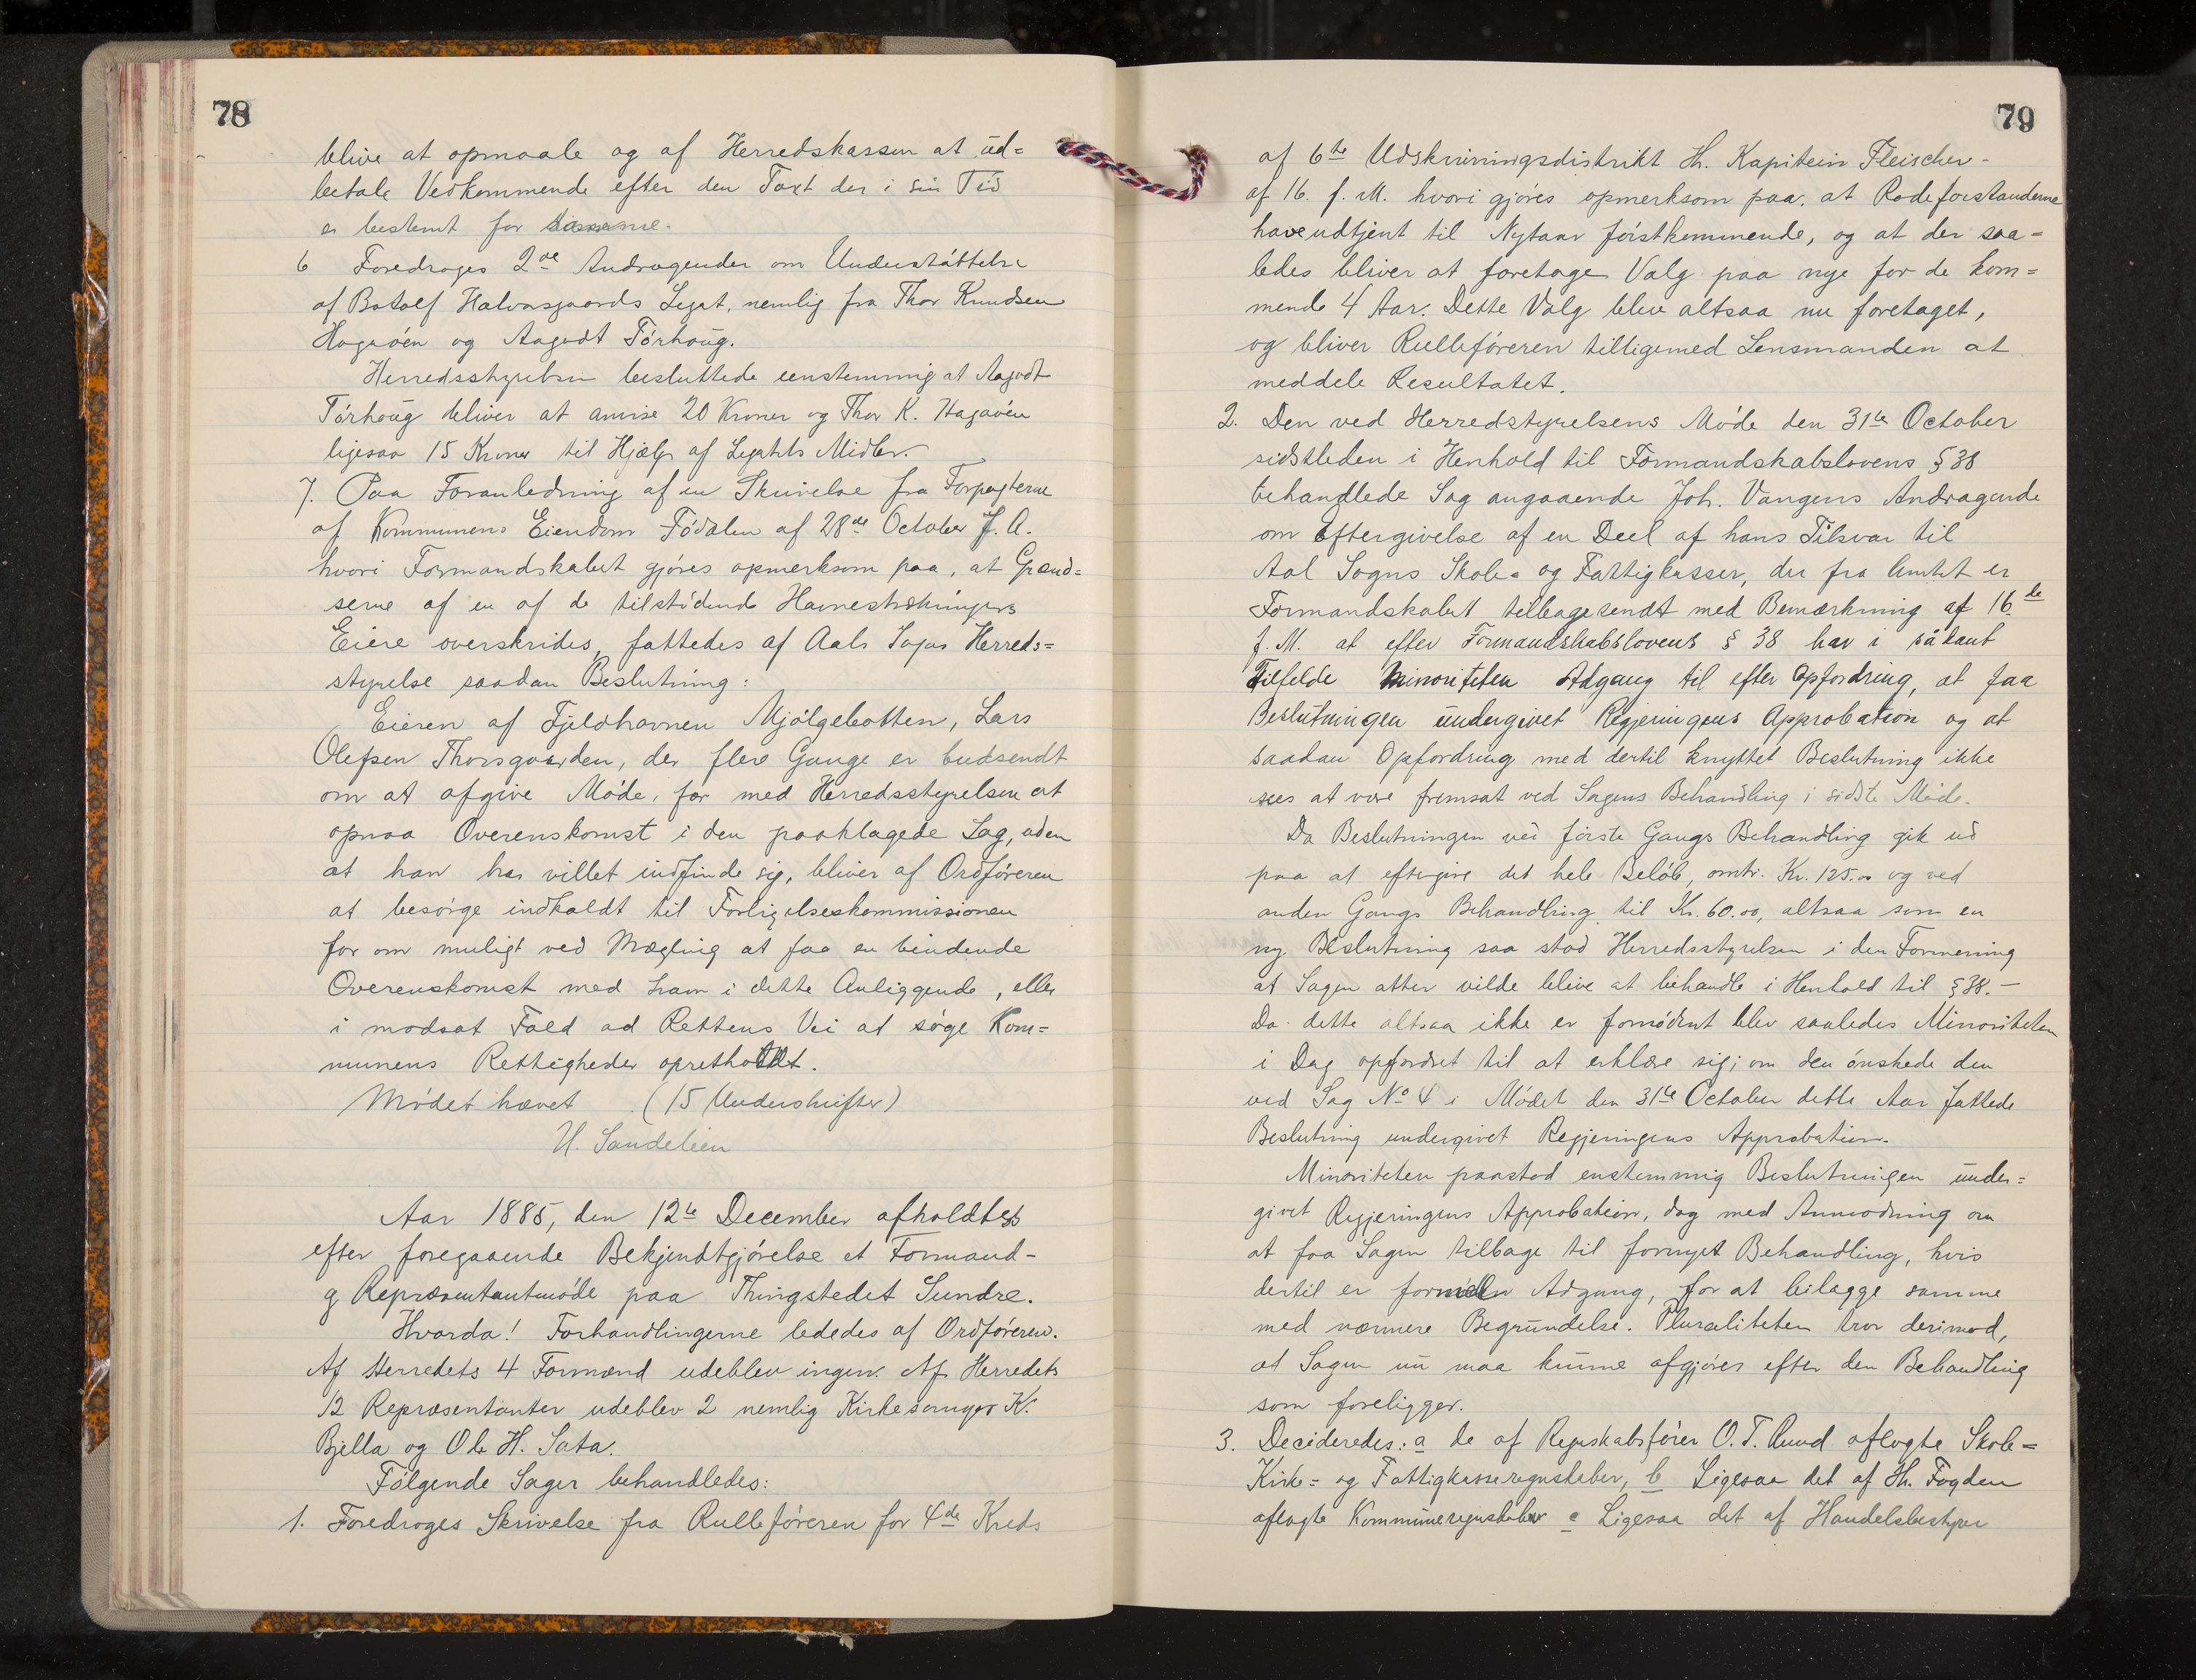 78
blive at opmaale og af Herredskassen at ud=
betale Vedkommende efter den Taxt der i sin Tid
er bestemt for samme.
6 Foredroges 2de Andragender om Understøttelse
af Botolf Halvorsgaards Legat, nemlig fra Thor Knudsen
Hagaøen og Aagodt Tørhoug.
Herredsstyrelsen besluttede eenstemmig at Aagodt
Tørhoug bliver at anvise 20 Kroner og Thor K. Hagaøen
ligesaa 15 Kroner til Hjælp af Legatets Midler.
7. Paa Foranledning af en Skrivelse fra Forpagterne
af Kommunens Eiendom Fødalen af 28de October f. A.
hvori Formandskabet gjøres opmerksom paa, at Grænd=
serne af en af de tilstødende Havnestrækningers
Eiere overskrides, fattedes af Aals Sogns Herreds=
styrelse saadan Beslutning:
Eieren af Fjeldhavnen Mjølgebotten, Lars
Olefsen Thorsgaarden, der flere Gange er budsendt
om at afgive Møde, for med Herredsstyrelsen at
opnaa Overenskomst i den paaklagede Sag, uden
at han har villet indfinde sig, bliver af Ordføreren
at besørge indkaldt til Forligelseskommissionen
for om muligt ved Mægling at faa en bindende
Overenskomst med ham i dette Anliggende, eller
i modsat Fald ad Rettens Vei at søge Kom=
munens Rettigheder opretholdt.
Mødet hævet (15 Underskrifter)
H. Sandelien
Aar 1885, den 12te December afholdtes
efter foregaaende Bekjendtgjørelse et Formand-
og Repræsentantmøde paa Thingstedet Sundre.
Hvorda! Forhandlingerne lededes af Ordføreren.
Af Herredets 4 Formænd udeblev ingen. Af Herredets
12 Repræsentanter udeblev 2 nemlig Kirkesanger K.
Bjella og Ole H. Sata.
Følgende Sager behandledes:
1. Foredroges Skrivelse fra Rulleføreren for 4de Kreds
79
af 6te Udskrivningsdistrikt Hr. Kapitein Fleischer-
af 16. f. M. hvori gjøres opmerksom paa, at Rodeforstanderne
have udtjent til Nytaar førstkommende, og at der saa=
ledes bliver at foretage Valg paa nye for de kom=
mende 4 Aar. Dette Valg blev altsaa nu foretaget,
og bliver Rulleføreren tilligemed Lensmanden at
meddele Resultatet.
2. Den ved Herredstyrelsens Møde den 31te October
sidstleden i Henhold til Formandskabslovens § 38
behandlede Sag angaaende Joh. Vangens Andragende
om Eftergivelse af en Deel af hans Tilsvar til
Aal Sogns Skole= og Fattigkasser, der fra Amtet er
Formandskabet tilbagesendt med Bemærkning af 16de
f. M. at efter Formandskabslovens § 38 har i sådant
Tilfelde Minoriteten Adgang til efter Opfordring, at faa
Beslutningen undergivet Regjeringens Approbation og at
saadan Opfordring med dertil knyttet Beslutning ikke
sees at være fremsat ved Sagens Behandling i sidste Møde.
Da Beslutningen ved første Gangs Behandling gik ud
paa at eftergive det hele Beløb, omtr. Kr. 125.00 og ved
anden Gangs Behandling til Kr. 60.00, altsaa som en
ny Beslutning saa stod Herredsstyrelsen i den Formening
at Sagen atter vilde blive at behandle i Henhold til § 38.-
Da dette altsaa ikke er fornødent blev saaledes Minoriteten
i Dag opfordret til at erklære sig; om den ønskede den
ved Sag No 4 i Mødet den 31te October dette Aar fattede
Beslutning undergivet Regjeringens Approbation.
Minoriteten paastod enstemmig Beslutningen under=
givet Regjeringens Approbation, dog med Anmodning om
at faa Sagen tilbage til fornyet Behandling, hvis
dertil er formeln Adgang, for at bilægge samme
med nærmere Begrundelse. Pluraliteten tror derimod,
at Sagen nu maa kunne afgjøres efter den Behandling
som foreligger.
3. Decideredes: a de af Regnskabsfører O. T. Ruud aflagte Skole=
Kirke= og Fattigkasseregnskaber, b Ligesaa det af Hr. Fogden
aflagte Kommuneregnskaber c Ligesaa det af Handelsbestyrer